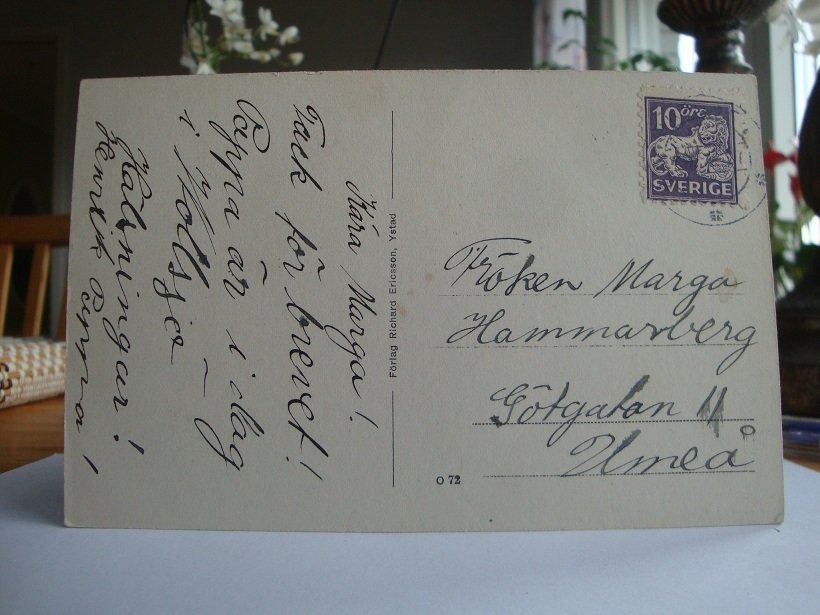 Kära Marga!
Tack för brevet!
Pappa är i dag
i Mölsjö –
Hälsningar!
Pappa!
Förlag Richard Ericsson, Ystad
O 72
10 ÖRE
SVERIGE
Fröken Marga
Hammarberg
Götgatan 11
Umeå